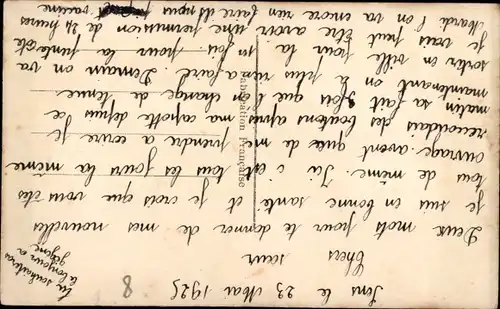 Sens le 23 Mai 1925
Chers
sœur
Deux mots pour te donner de mes nouvelles
Je suis en bonne santé et je crois que vous êtes
tous de même. Ici c'est tous les jours la même
ouvrage. avant que de me prendre a ecrire je
recoudais des boutons apres ma capotte depuis ce
matin sa fait 2 fois que l'on change de tenue.
maintenant on a plus rien a faire. Demain on va
sortir en ville pour la 1er fois pour la pentecôte
je vais peut être avoir une permission de 24 heures
Mardi l'on va encore rien faire ils nous vaccine
Tu souhaitera
le bonjour a
8
Fabrication Française